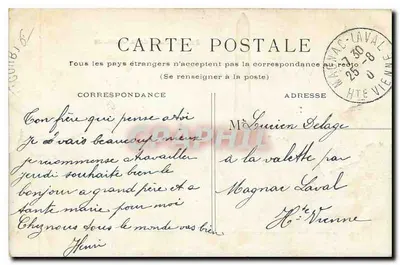 CARTE POSTALE
Tous les pays étrangers n'acceptent pas la correspondance au recto
(Se renseigner à la poste)
CORRESPONDANCE
ADRESSE
MAGNAC-LAVAL
7 30
25 -8
HTE VIENNE
Ton frère qui pense a toi
Je vais beaucoup mieux
je recommense a travailler
jeudi souhaite bien le
bonjour a grand père et a
tante marie pour moi
Chez nous tous le monde vas bien
Henri
M Lucien Delage
a la valette par
Magnac Laval
Hte Vienne